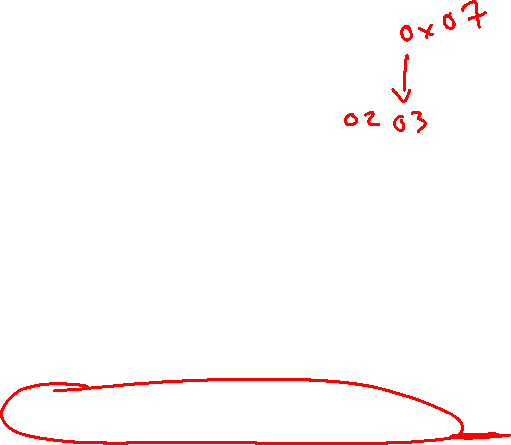 0x07
02 03